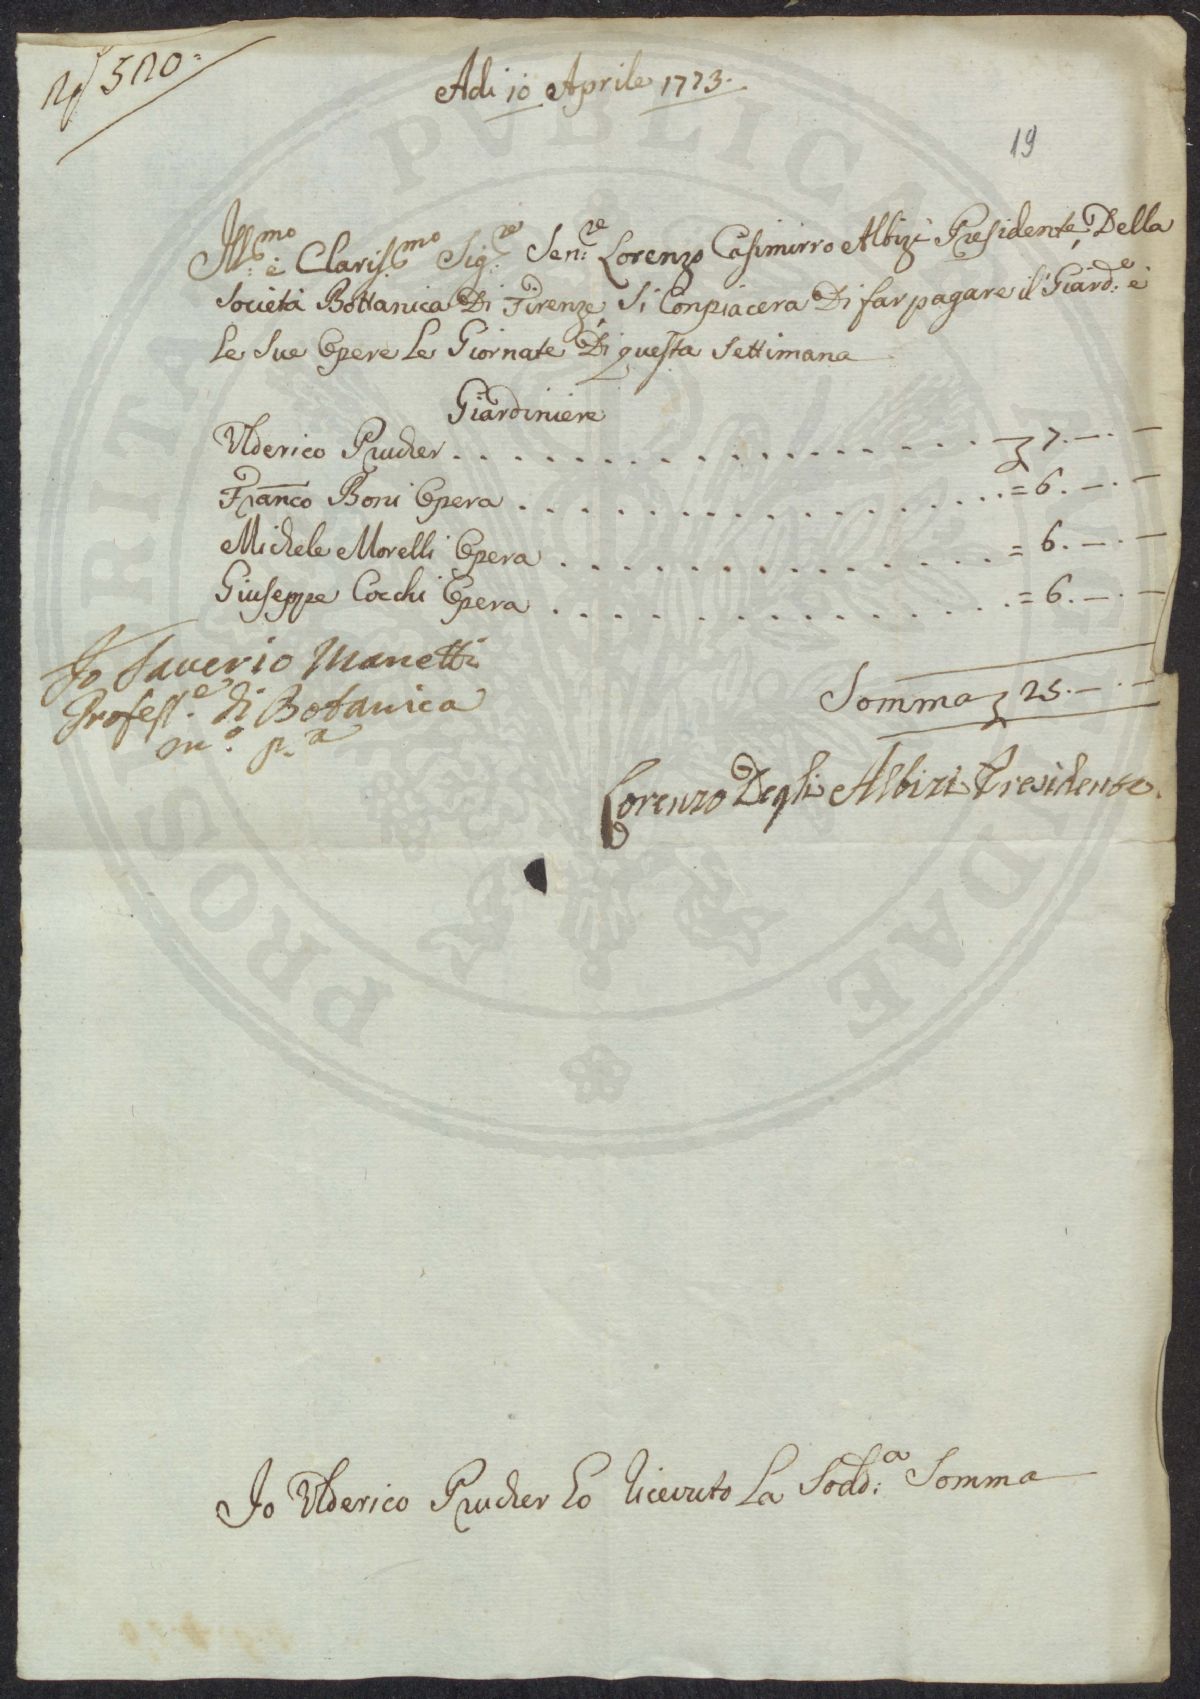 520
Adi 10 Aprile 1773.
19
Ill:mo è Claris:mo Sig:re Sen:re Lorenzo Casimirro Albizi Presidente, Della
Società Bottanica Di Firenze, Si Conpiacera Di far pagare il Giard:e è
le Sue Opere le Giornate Di questa Settimana
Giardiniere
Ulderico Prucher . . . . . . . . . . 7. — . —
Franco Boni Opera . . . . . . . . . . = 6. — . —
Michele Morelli Opera . . . . . . . . . . = 6. — . —
Giuseppe Cocchi Opera . . . . . . . . . . = 6. — . —
Io Saverio Manetti
Profess:e di Botanica
m:o p:a
Somma 25. — . —
Lorenzo Degli Albizi Presidente.
Io Ulderico Prucher ho ricevuto La Sodd:a Somma
PROSPERITATI PVBLICAE